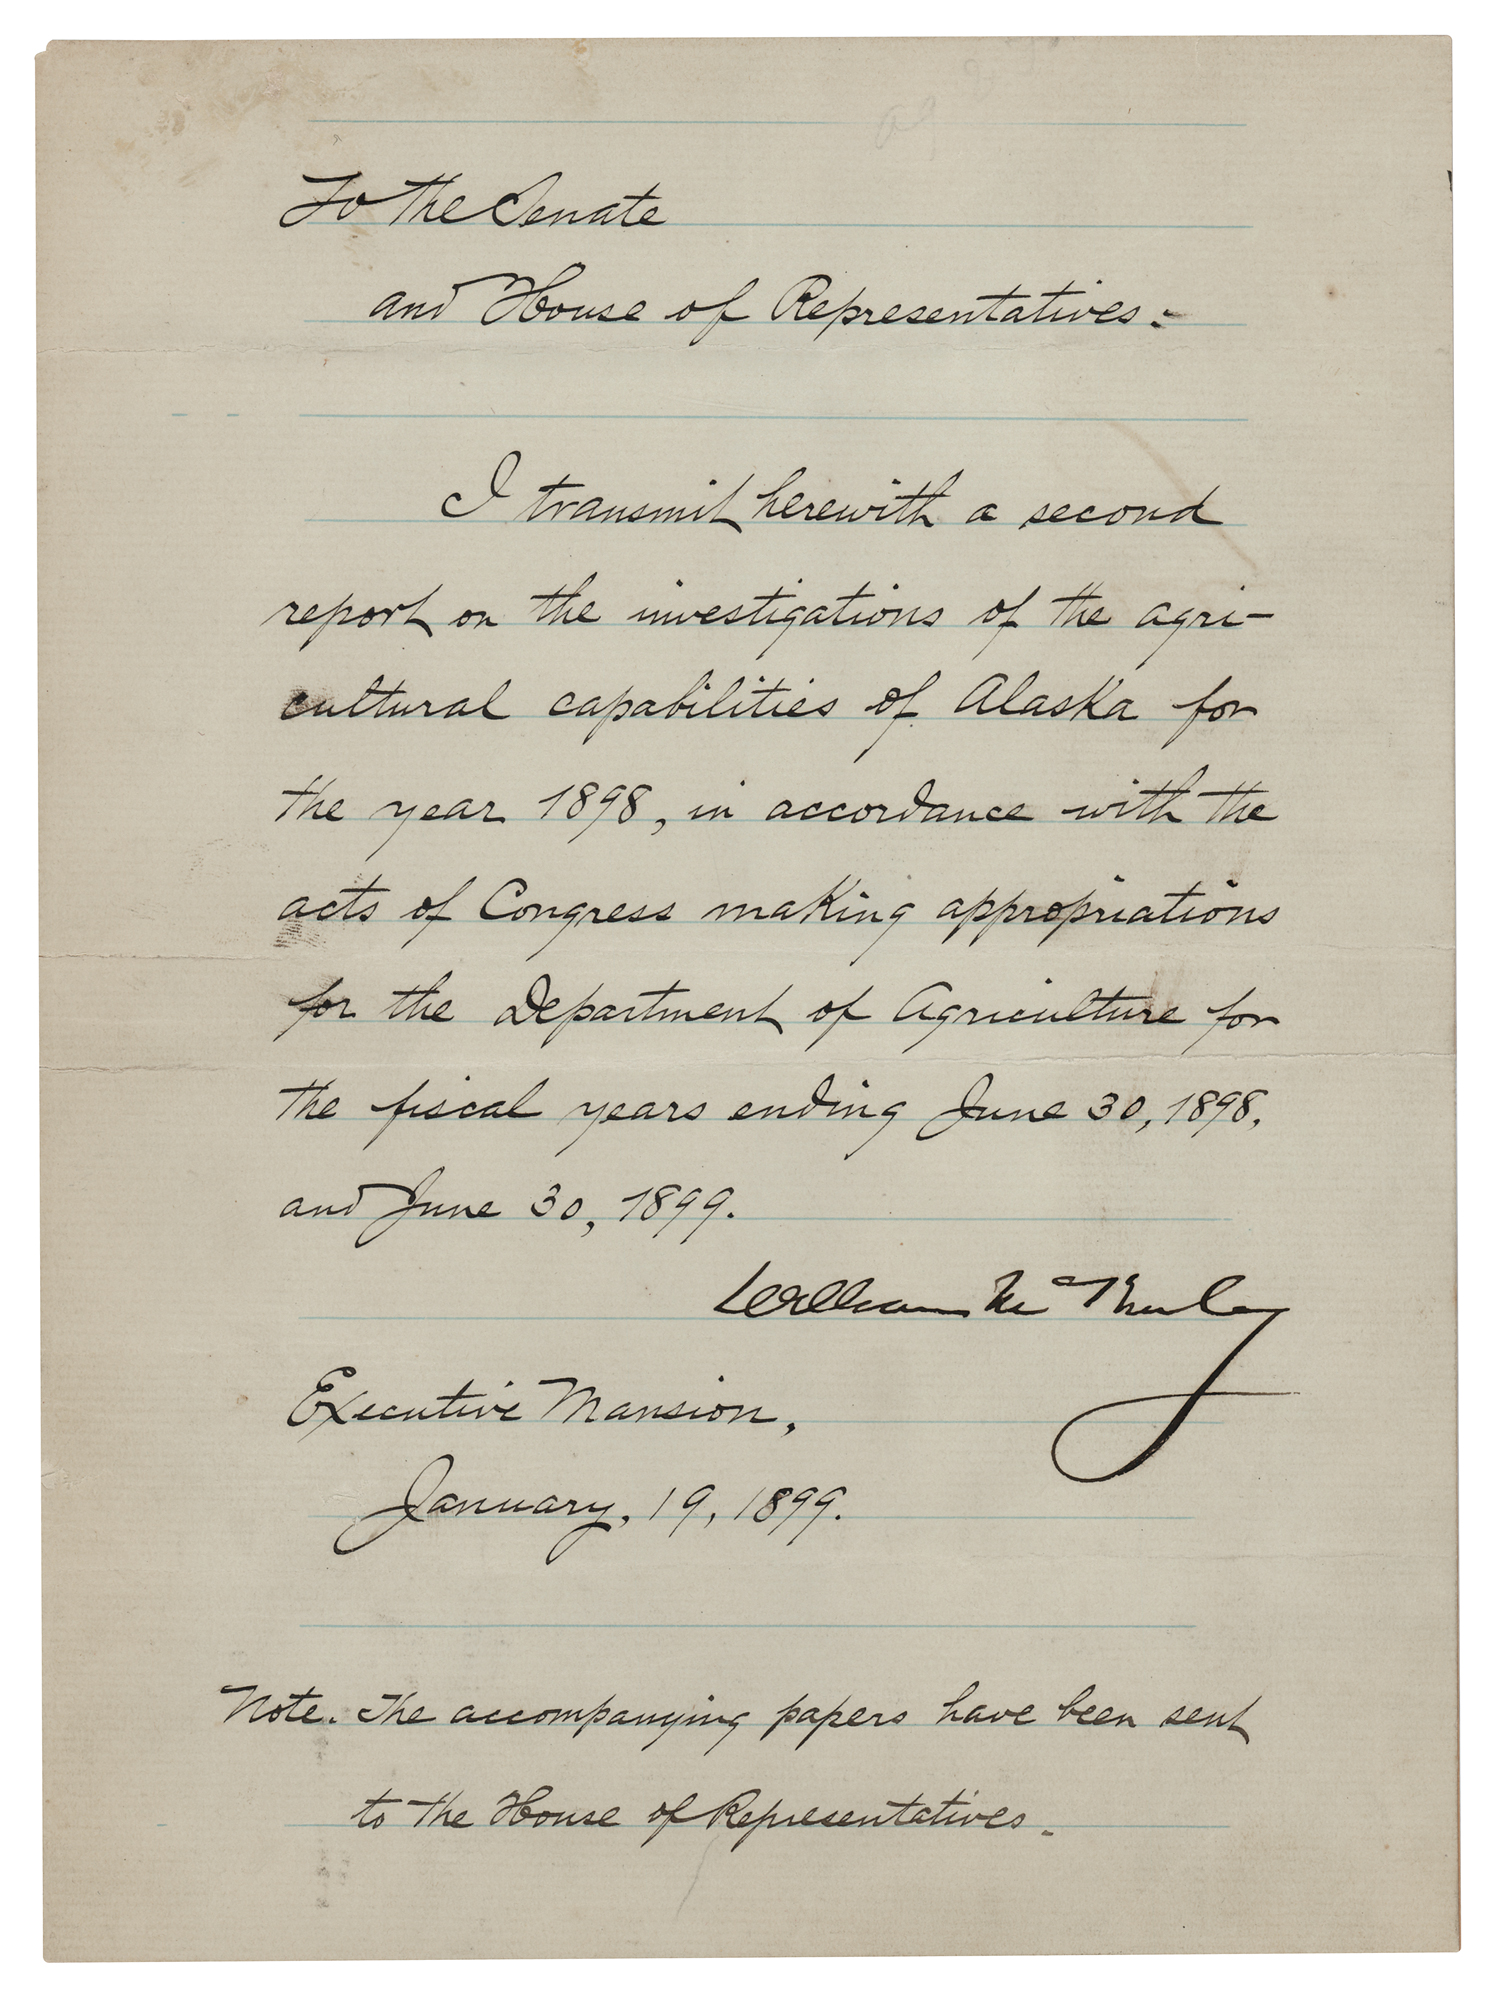 To the Senate
and House of Representatives:
I transmit herewith a second
report on the investigations of the agri-
cultural capabilities of Alaska for
the year 1898, in accordance with the
acts of Congress making appropriations
for the Department of Agriculture for
the fiscal years ending June 30, 1898,
and June 30, 1899.
William McKinley
Executive Mansion,
January, 19, 1899.
Note. The accompanying papers have been sent
to the House of Representatives.